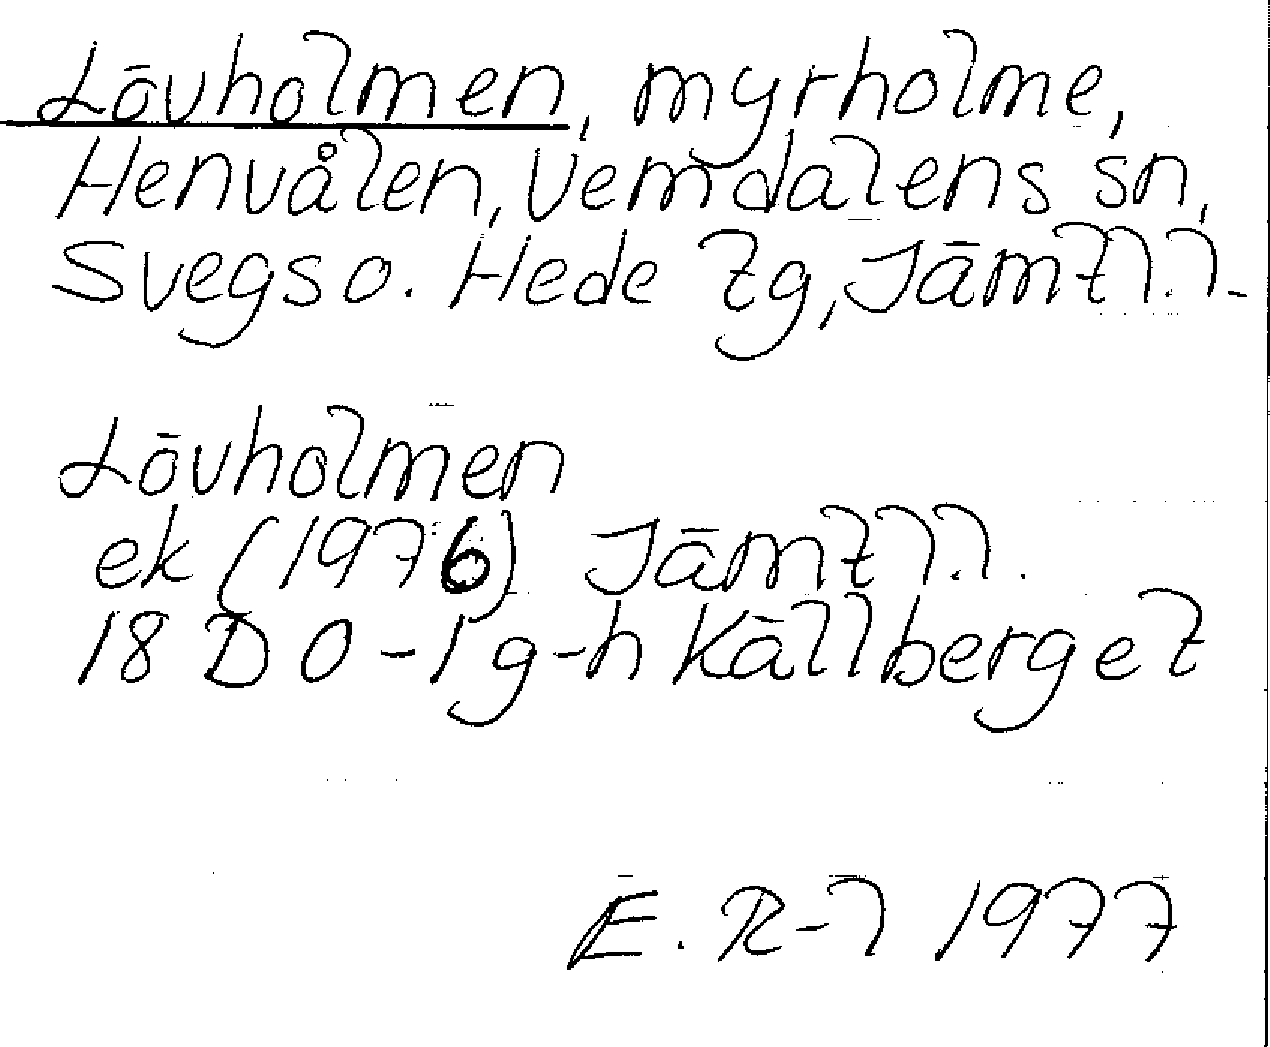 Lövholmen, myrholme,
Henvålen, Vemdalens sn,
Svegs o. Hede tg, Jämtl.l.
Lövholmen
ek (1976) Jämtl.l.
18 D 0-1 g-h Källberget
E. R-l 1977